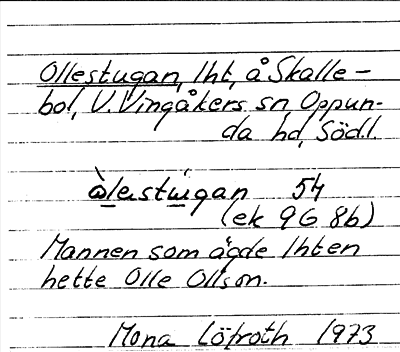 Ollestugan, lht, å Skalle-
bol, V. Vingåkers sn Oppun-
da hd, Södl.
54
(ek 9G 8b)
Mannen som ägde lhten
hette Olle Olsson.
Mona Löfroth 1973